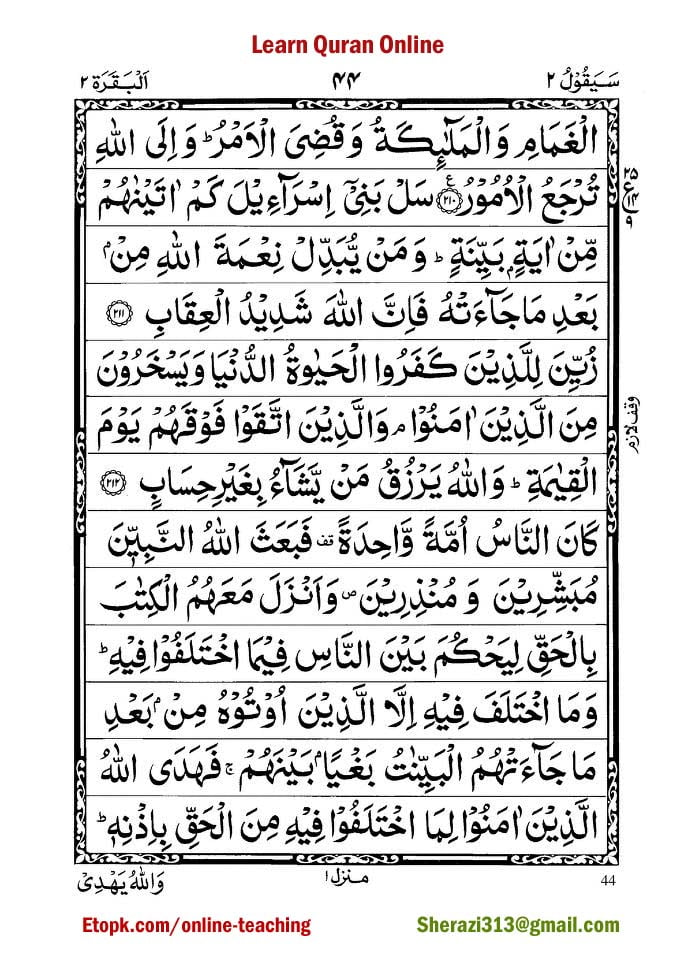 Learn Quran Online
سَیَقُوۡلُ ۲ ۴۴ اَلۡبَقَرَة ۲
الۡغَمَامِ وَالۡمَلٰٓئِکَةُ وَ قُضِیَ الۡاَمۡرُ ؕ وَ اِلَی اللّٰهِ
تُرۡجَعُ الۡاُمُوۡرُ ﴿۲۱۰﴾ ع سَلۡ بَنِیۡۤ اِسۡرَآءِیۡلَ کَمۡ اٰتَیۡنٰهُمۡ
۲۵ ع ۱۴ ۹
مِّنۡ اٰیَةٍۭ بَیِّنَةٍ ؕ وَ مَنۡ یُّبَدِّلۡ نِعۡمَةَ اللّٰهِ مِنۡۢ
بَعۡدِ مَا جَآءَتۡهُ فَاِنَّ اللّٰهَ شَدِیۡدُ الۡعِقَابِ ﴿۲۱۱﴾
زُیِّنَ لِلَّذِیۡنَ کَفَرُوا الۡحَیٰوةُ الدُّنۡیَا وَ یَسۡخَرُوۡنَ
مِنَ الَّذِیۡنَ اٰمَنُوۡا ۘ وَالَّذِیۡنَ اتَّقَوۡا فَوۡقَهُمۡ یَوۡمَ
وقف لازم
الۡقِیٰمَةِ ؕ وَاللّٰهُ یَرۡزُقُ مَنۡ یَّشَآءُ بِغَیۡرِ حِسَابٍ ﴿۲۱۲﴾
کَانَ النَّاسُ اُمَّةً وَّاحِدَةً ۟ قف فَبَعَثَ اللّٰهُ النَّبِیّٖنَ
مُبَشِّرِیۡنَ وَ مُنۡذِرِیۡنَ ۪ وَ اَنۡزَلَ مَعَهُمُ الۡکِتٰبَ
بِالۡحَقِّ لِیَحۡکُمَ بَیۡنَ النَّاسِ فِیۡمَا اخۡتَلَفُوۡا فِیۡهِ ؕ
وَ مَا اخۡتَلَفَ فِیۡهِ اِلَّا الَّذِیۡنَ اُوۡتُوۡهُ مِنۡۢ بَعۡدِ
مَا جَآءَتۡهُمُ الۡبَیِّنٰتُ بَغۡیًۢا بَیۡنَهُمۡ ۚ فَهَدَی اللّٰهُ
الَّذِیۡنَ اٰمَنُوۡا لِمَا اخۡتَلَفُوۡا فِیۡهِ مِنَ الۡحَقِّ بِاِذۡنِهٖ ؕ
44 منزل ۱ وَاللّٰهُ یَهۡدِیۡ
Etopk.com/online-teaching Sherazi313@gmail.com